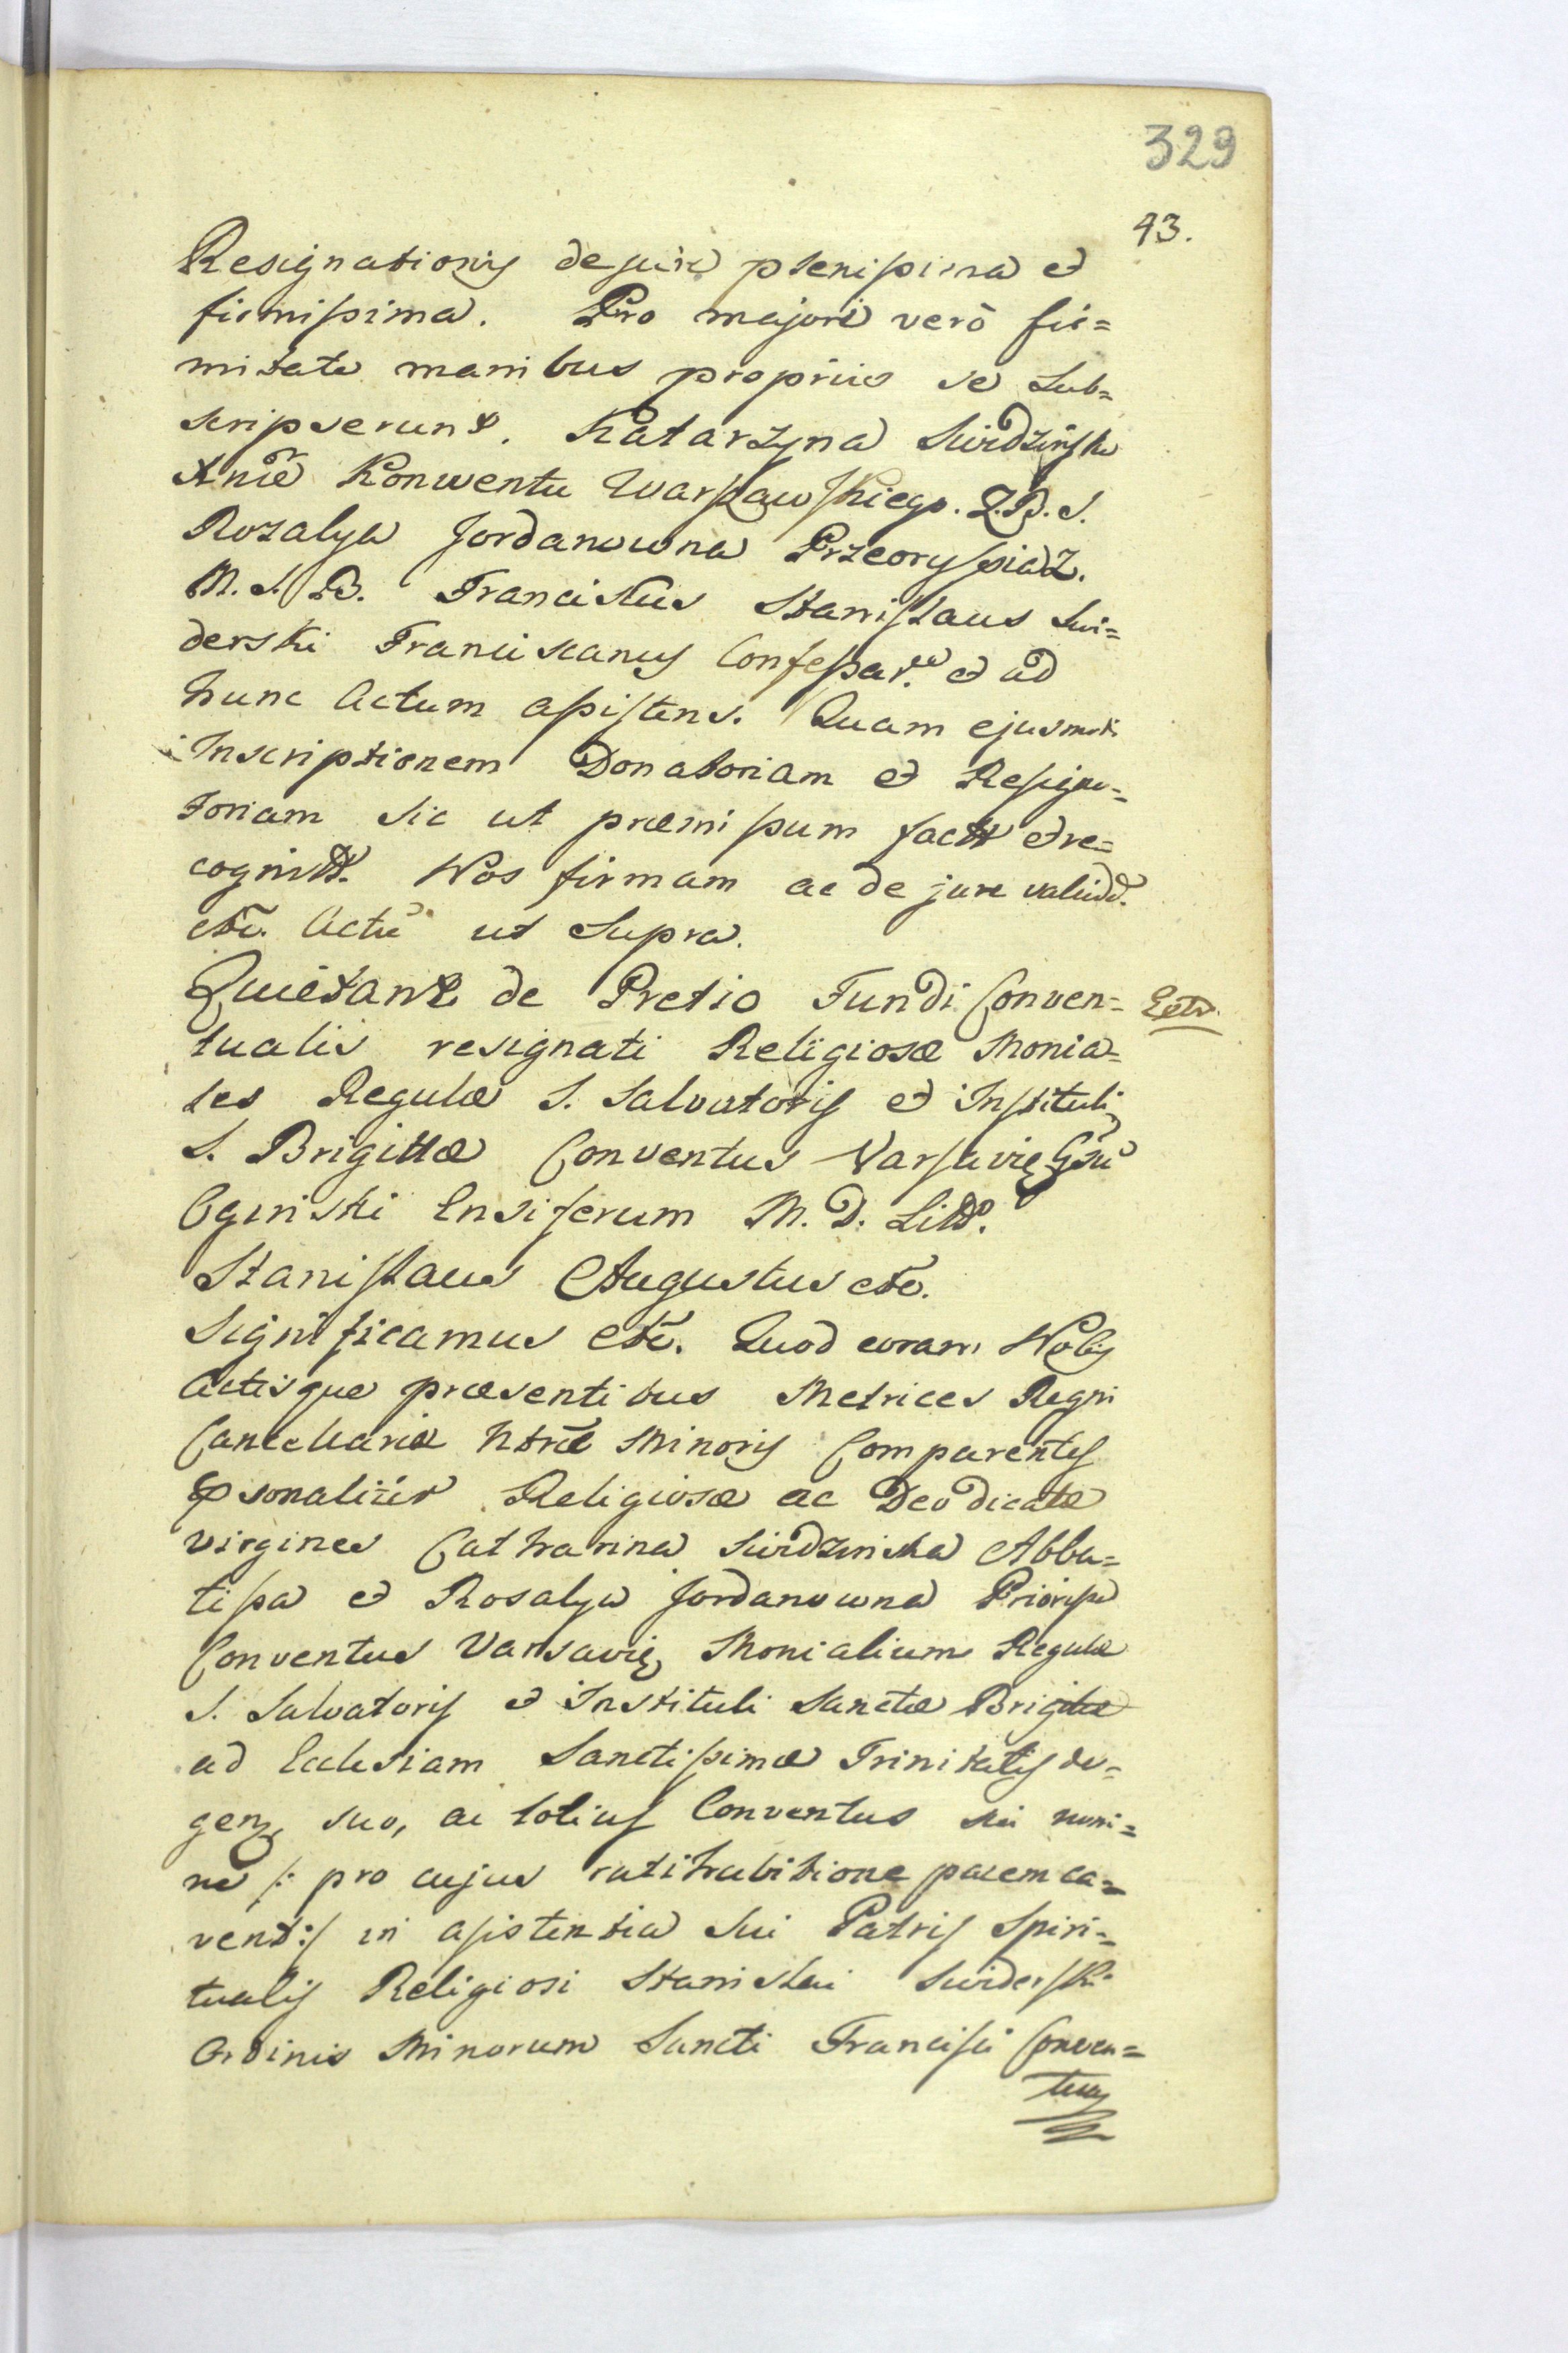 329
93.
Resignationis de jure plenissima et
firmissima. Pro majori verò fir=
mitate manibus propriis se sub=
scripserunt. Katarzyna Swidzińska
Xniẽ Konwentu Warszawskiego. Z.B.S.
Rozalya Jordanowna Przeoryssia Z.
M. S. B. Franciskus Stanislaus Swi=
derski Franciscanus Confessar. et ad
hunc Actum assistens. Quam ejusmodi
Inscriptionem Donatoriam et Resigna=
toriam sic ut præmissum factt et re=
cognitt. Nos firmam ac de jure validd.
etc. Actũ ut supra.
Quietant de Pretio Fundi Conven=
tualis resignati Religiosæ Monia=
les Regulæ S. Salvatoris et Instituti
S. Brigittæ Conventus Varsavię Gsũ
Oginski Ensiferum M. D. Litt.
Stanislaus Augustus etc.
Significamus etc. Quod coram Nobis
Actisque præsentibus Metrices Regni
Cancellariæ Ntræ Minoris Comparentes
psonalitèr Religiosæ ac Deo dicatæ
virgines Catharina Swidzinska Abba=
tissa et Rosalya Jordanowna Priorissa
Conventus Varsavię Monialium Regulæ
S. Salvatoris et Instituti Sanctæ Brigittæ
ad Ecclesiam Sanctissimæ Trinitatis de=
gen, suo, ac totius Conventus sui nomi=
ne /: pro cujus ratihabitione pacem ca=
vent :/ in assistentia sui Patris Spiri=
tualis Religiosi Stanislai Swiderski
Ordinis Minorum Sancti Francisci Conven=
tuas